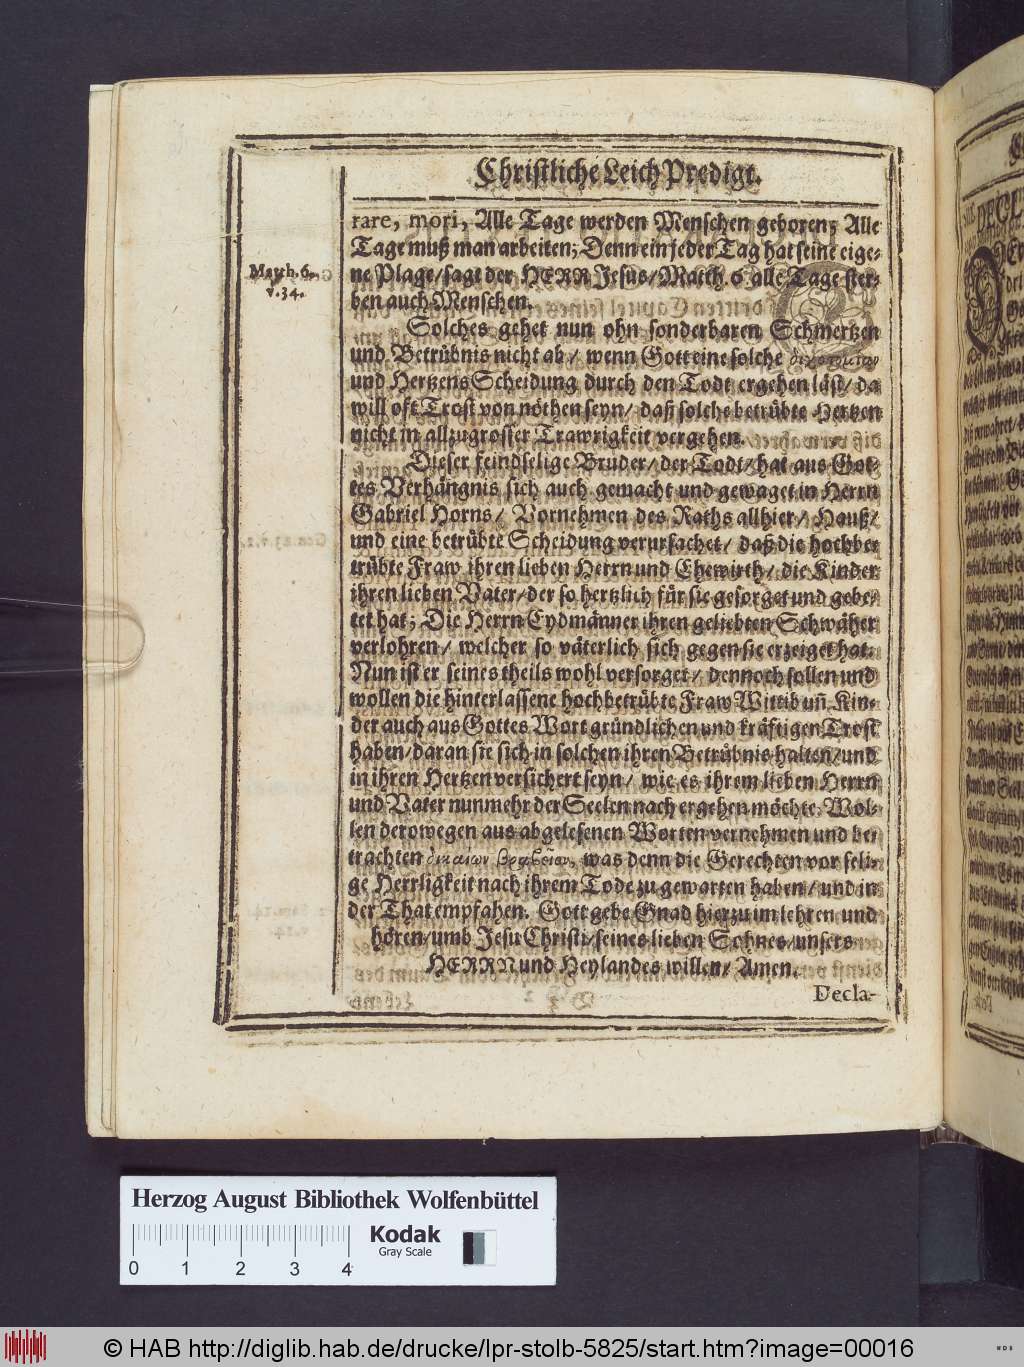 Christliche Leich Predigt.
rare, mori, Alle Tage werden Menschen geboren; Alle
Tage muß man arbeiten; Denn ein jeder Tag hat seine eige-
ne Plage/ sagt der HERR Jesus/ Matth. 6. alle Tage ster-
ben auch Menschen.
Matth. 6.
v. 34.
Solches gehet nun ohn sonderbaren Schmertzen
und Betrübnis nicht ab/ wenn Gott eine solche
und Hertzens Scheidung durch den Todt ergehen läst/ da
will oft Trost von nöthen seyn/ daß solche betrübte Hertzen
nicht in allzugrosser Trawrigkeit vergehen.
Dieser feindselige Brüder/ der Todt/ hat aus Got-
tes Verhängnis sich auch gemacht und gewaget in Herrn
Gabriel Horns/ Vornehmen des Raths allhier/ Hauß/
und eine betrübte Scheidung verursachet/ daß die hochbe-
trübte Fraw ihren lieben Herrn und Ehewirth/ die Kinder
ihren lieben Vater/ der so hertzlich für sie gesorget und gebe-
tet hat; Die Herrn Eydmänner ihren geliebten Schwäher
verlohren/ welcher so väterlich sich gegen sie erzeiget hat.
Nun ist er seines theils wohl versorget/ dennoch sollen und
wollen die hinterlassene hochbetrübte Fraw Wittib uñ Kin-
der auch aus Gottes Wort gründlichen und kräftigen Trost
haben/ daran sie sich in solchen ihren Betrübnis halten/ und
in ihren Hertzen versichert seyn/ wie es ihrem lieben Herrn
und Vater nunmehr der Seelen nach ergehen möchte. Wol-
len derowegen aus abgelesenen Worten vernehmen und be-
trachten δικαίων βραβεῖον, was denn die Gerechten vor seli-
ge Herrligkeit nach ihrem Tode zu gewarten haben/ und in
der That empfahen. Gott gebe Gnad hierzu im lehren und
hören/ umb Jesu Christi/ seines lieben Sohnes/ unsers
HERRN und Heylandes willen/ Amen.
Decla-
Herzog August Bibliothek Wolfenbüttel
Kodak
Gray Scale
0 1 2 3 4
© HAB http://diglib.hab.de/drucke/lpr-stolb-5825/start.htm?image=00016